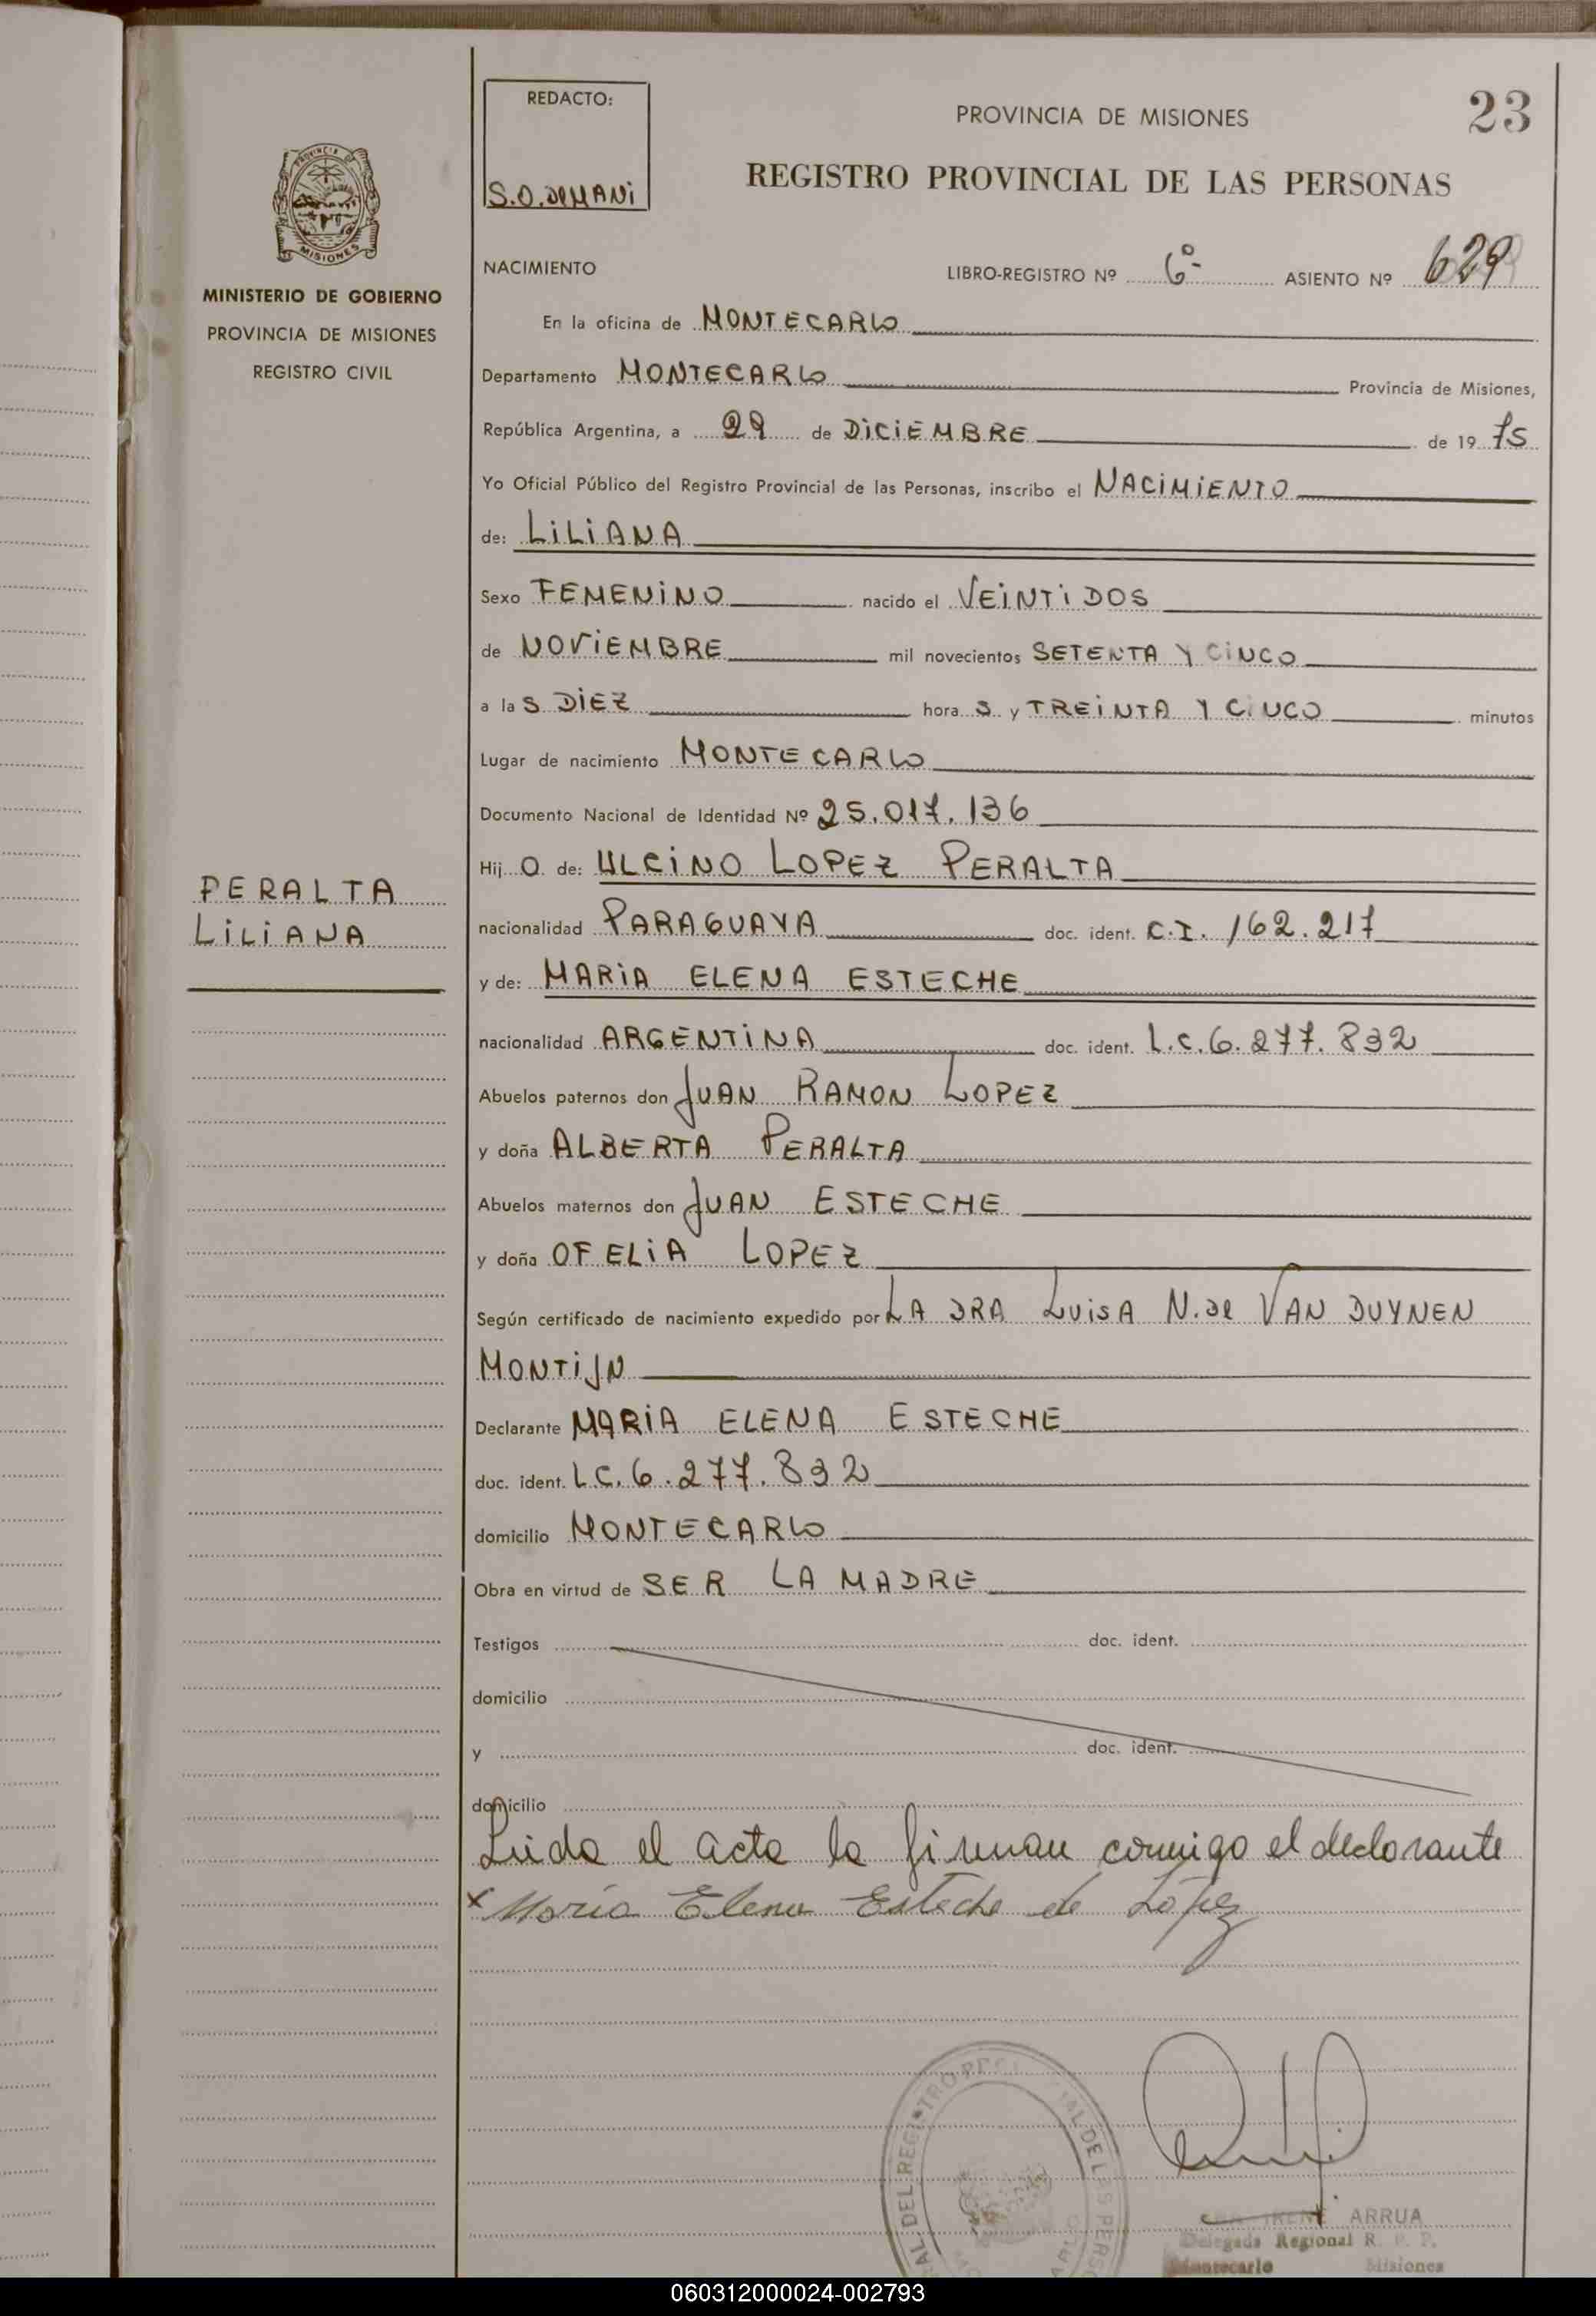 REDACTO:
S.O. DEMANI
PROVINCIA DE MISIONES
23
REGISTRO PROVINCIAL DE LAS PERSONAS
PROVINCIA DE
MISIONES
MINISTERIO DE GOBIERNO
PROVINCIA DE MISIONES
REGISTRO CIVIL
NACIMIENTO LIBRO-REGISTRO Nº 6º ASIENTO Nº 629
En la oficina de MONTECARLO
Departamento MONTECARLO Provincia de Misiones,
República Argentina, a 29 de DICIEMBRE de 19 75
Yo Oficial Público del Registro Provincial de las Personas, inscribo el NACIMIENTO
de: LILIANA
Sexo FEMENINO nacido el VEINTIDOS
de NOVIEMBRE mil novecientos SETENTA Y CINCO
a la S DIEZ hora S y TREINTA Y CINCO minutos
Lugar de nacimiento MONTECARLO
Documento Nacional de Identidad Nº 25.017.136
PERALTA
LILIANA
Hij O de: ULCINO LOPEZ PERALTA
nacionalidad PARAGUAYA doc. ident. C.I. 162.217
y de: MARIA ELENA ESTECHE
nacionalidad ARGENTINA doc. ident. L.C. 6.277.832
Abuelos paternos don JUAN RAMON LOPEZ
y doña ALBERTA PERALTA
Abuelos maternos don JUAN ESTECHE
y doña OFELIA LOPEZ
Según certificado de nacimiento expedido por LA DRA LUISA N. DE VAN DUYNEN
MONTIJN
Declarante MARIA ELENA ESTECHE
doc. ident. L.C. 6.277.832
domicilio MONTECARLO
Obra en virtud de SER LA MADRE
Testigos doc. ident.
domicilio
y doc. ident.
domicilio
Leida el acta la firman conmigo el declarante
x Maria Elena Esteche de López
IRENE ARRUA
Delegada Regional R. P. P.
Montecarlo Misiones
060312000024-002793